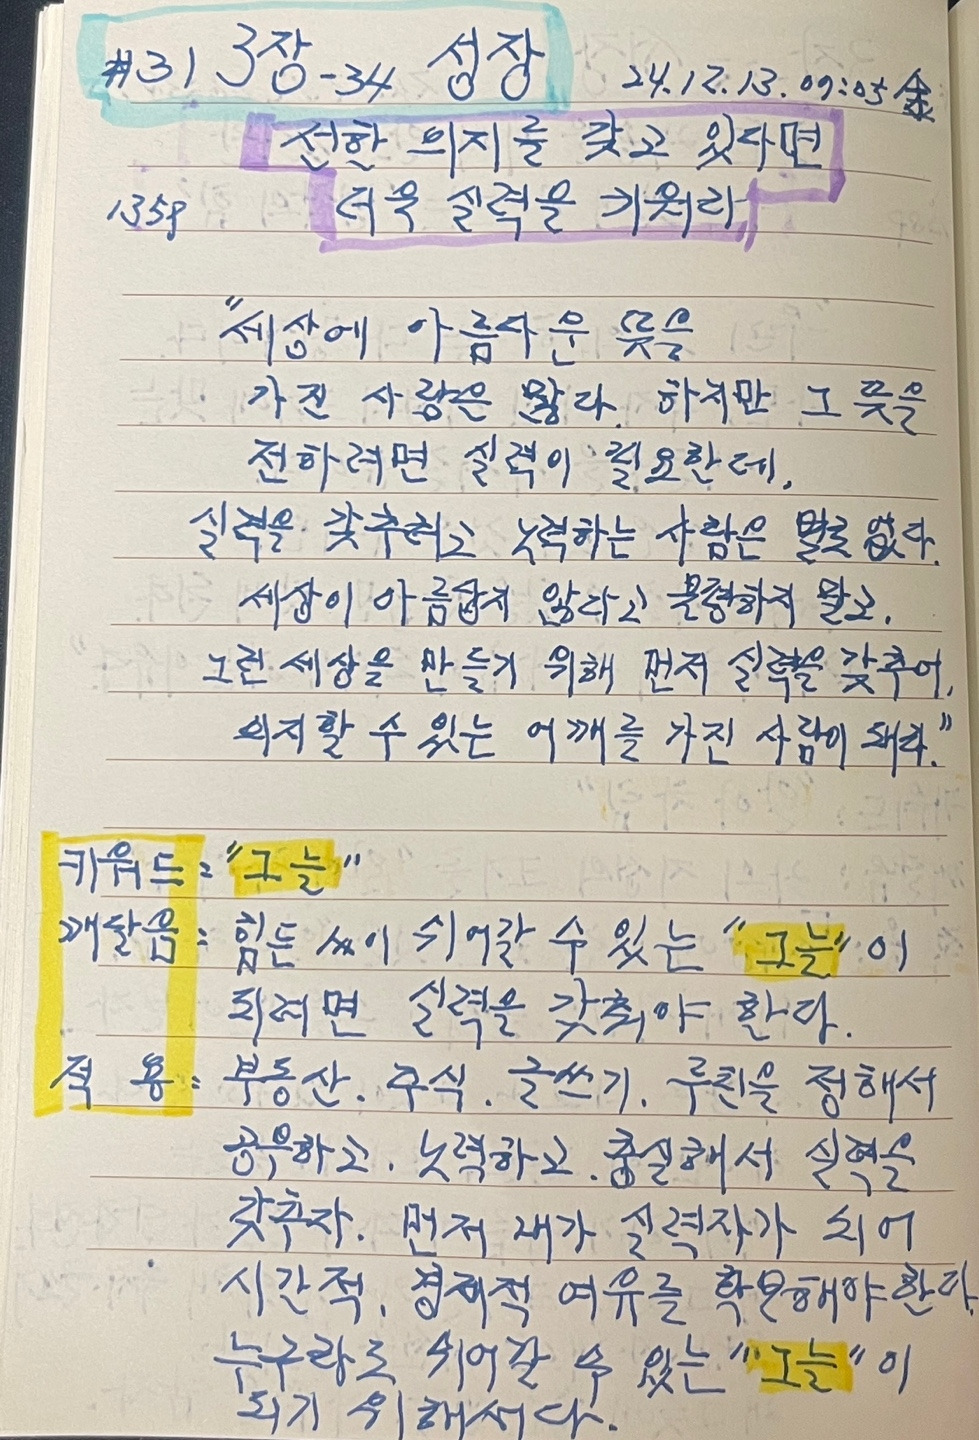 #31 3장-34 성장 24.12.13. 09:05 金
선한 의지를 갖고 있다면
135P 더욱 실력을 키워라
"세상에 아름다운 뜻을
가진 사람은 많다. 하지만 그 뜻을
전하려면 실력이 필요한데,
실력을 갖추려고 노력하는 사람은 별로 없다.
세상이 아름답지 않다고 불평하지 말고,
그런 세상을 만들기 위해 먼저 실력을 갖추어,
의지할 수 있는 어깨를 가진 사람이 돼라."
키워드 : "그늘"
깨달음 : 힘든 이 쉬어갈 수 있는 "그늘"이
되려면 실력을 갖춰야 한다.
적 용 : 부동산. 주식. 글쓰기. 루틴을 정해서
공부하고. 노력하고. 충실해서 실력을
갖추자. 먼저 내가 실력자가 되어
시간적, 경제적 여유를 확보해야 한다.
누구라도 쉬어갈 수 있는 "그늘"이
되기 위해서다.